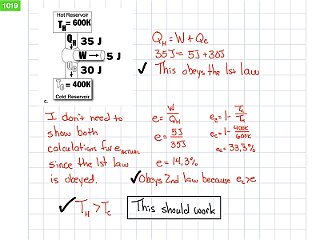 1019
Hot Reservoir
T_H = 600K
Q_H 35 J
W → 5 J
30 J
T_C = 400K
Cold Reservoir
c.
Q_H = W + Q_C
35J = 5J + 30J
✓ This obeys the 1st law
I don't need to
show both
calculations for e_ACTUAL
since the 1st law
is obeyed.
e = W/Q_H
e = 5J/35J
e = 14,3%
e_c = 1 - T_C/T_H
e_c = 1 - 400K/600K
e_c = 33,3%
✓ Obeys 2nd law because e_c > e
✓ T_H > T_C
This should work